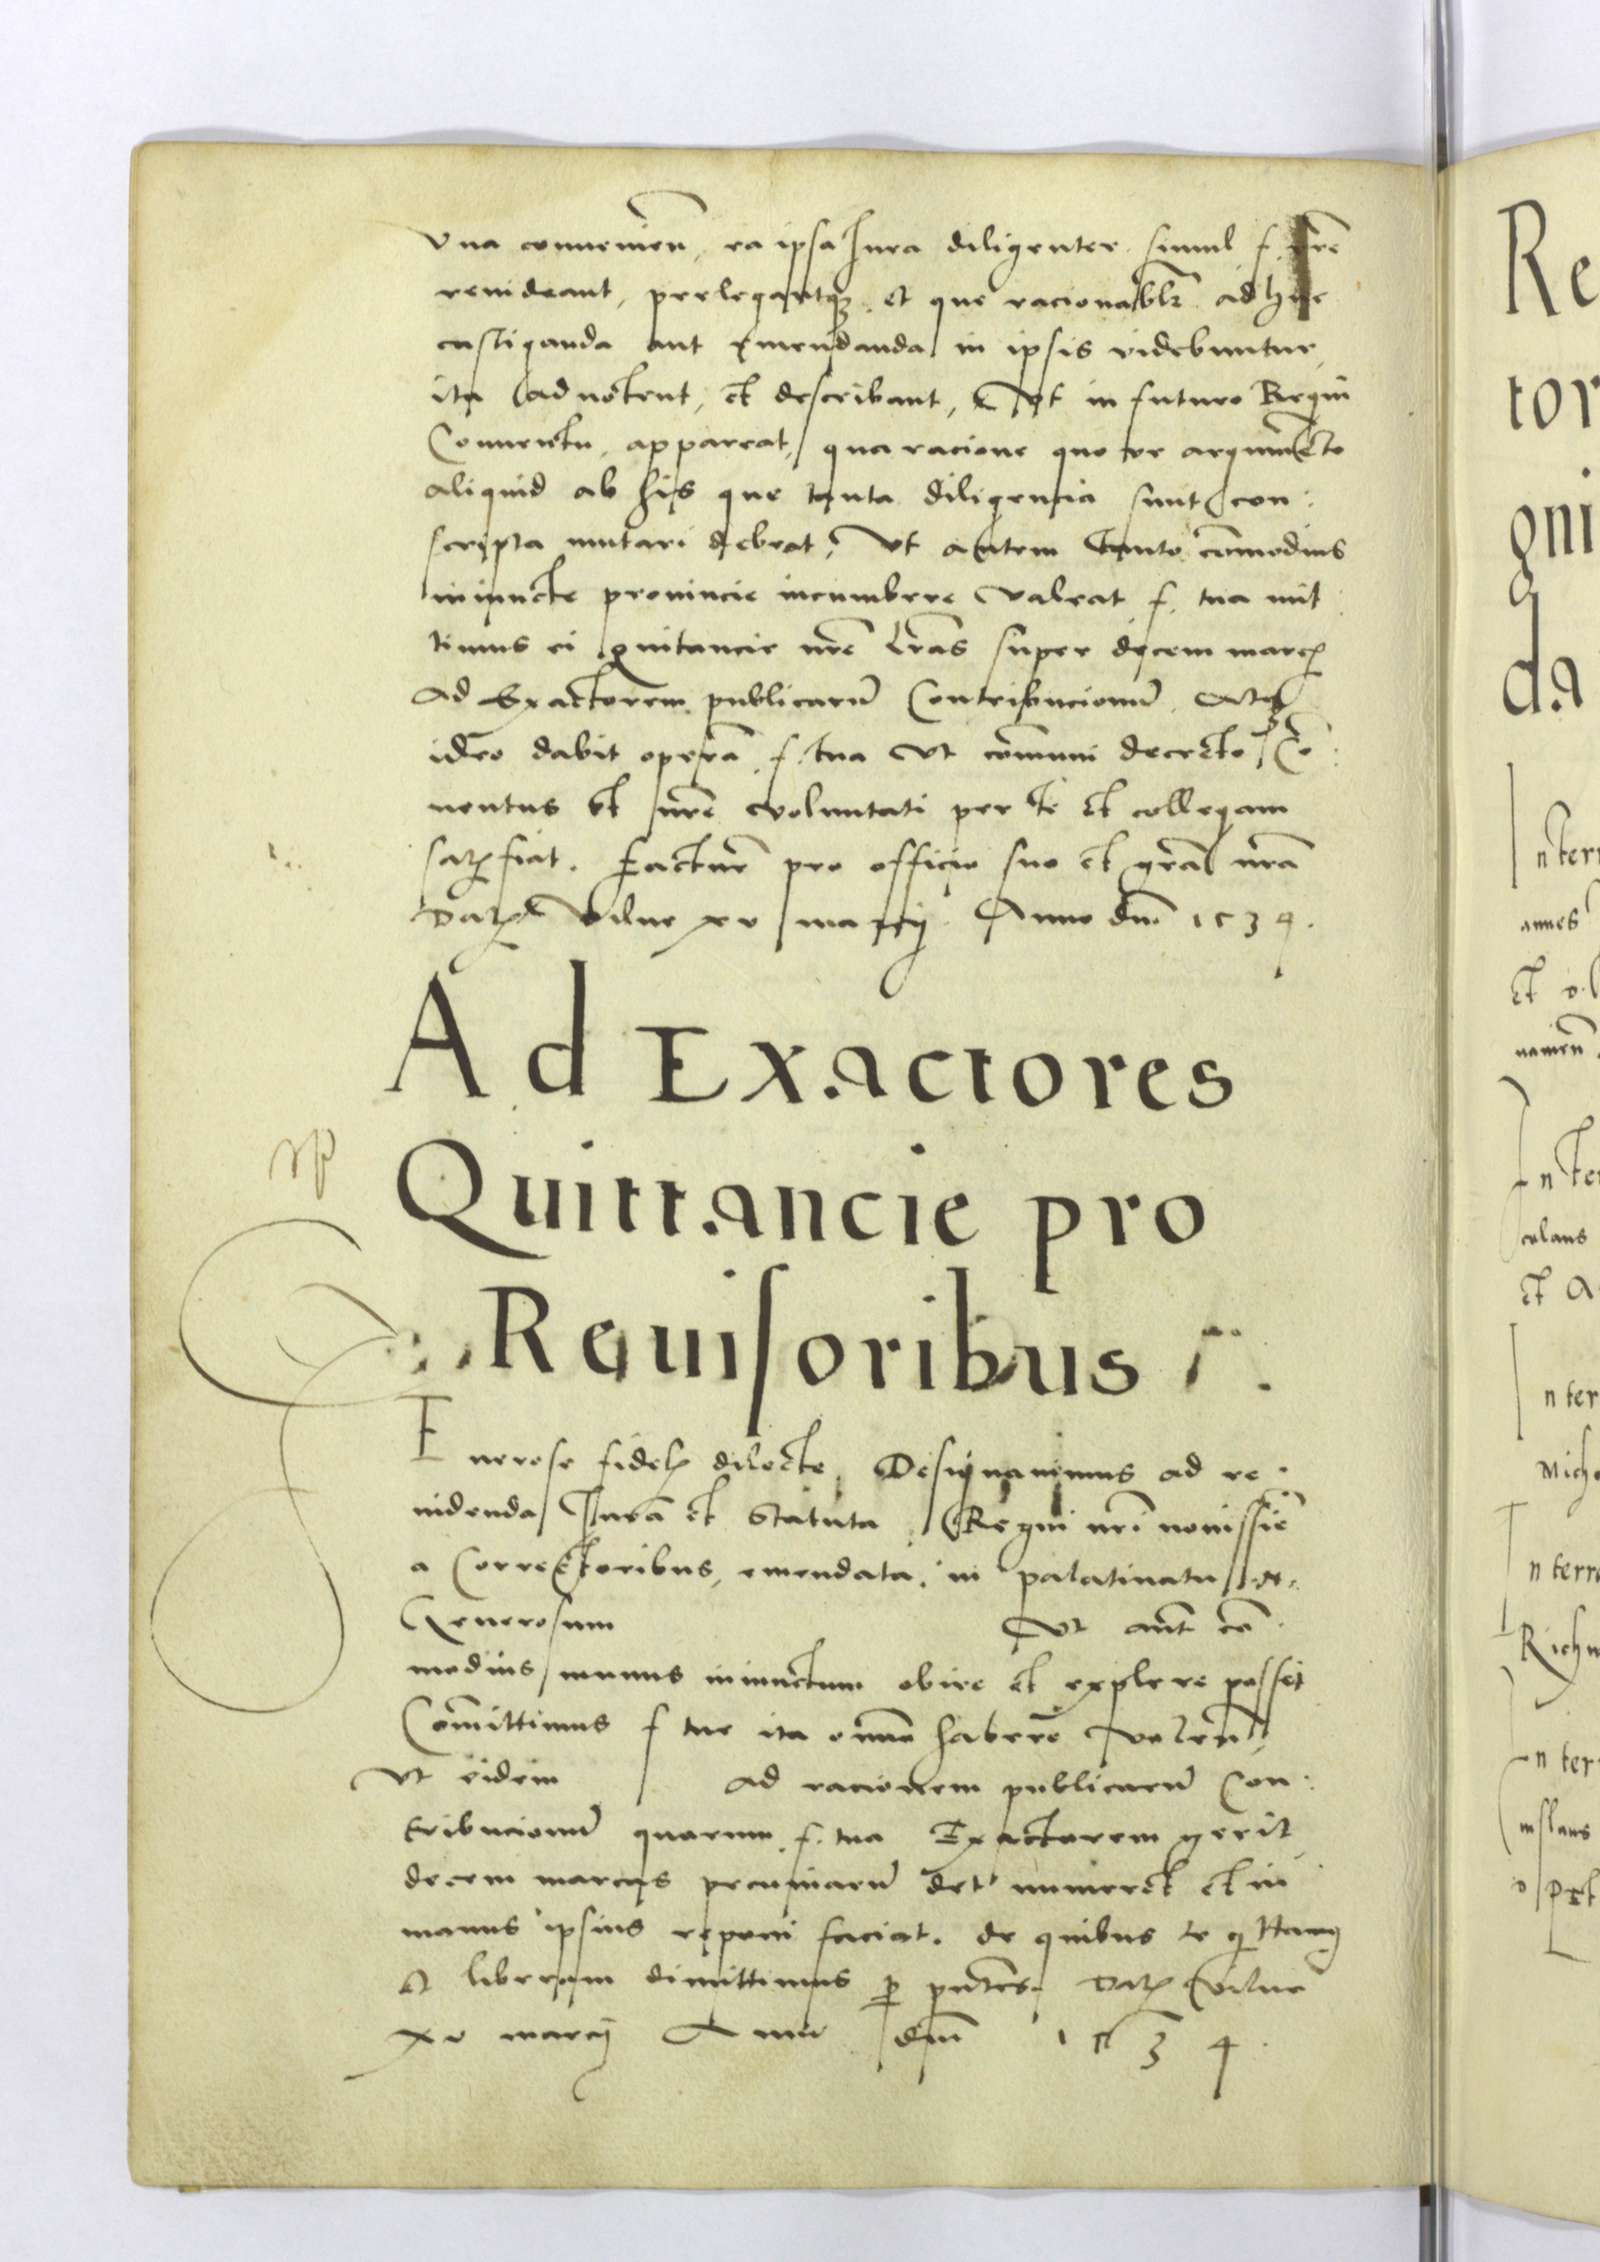 vna conuenien, ea ipsa Iura diligenter simul f. vr̃e
reuideant, perlegantq3 et que racionabl'r adhuc
castiganda aut emendanda in ipsis videbuntur,
ita adnotent, et describant, Vt in futuro Regni
Conuentu, appareat, qua racione quo ve argume͂to
aliquid ab his que tanta diligencia sunt con:
scripta mutari debeat, Vt autem tanto co͂modius
iniuncte prouincie incumbere valeat f. tua mit
timus ei quitancie nr̃e lr̃as super decem marcẜ
Ad Exactorem publicaru͂ Contribucionu͂ Atq3
ideo dabit opera͂ f. tua vt co͂muni decreto Co͂:
uentus et nr̃e voluntati per te et collegam
satẜfiat. Factur̃ pro officio suo et gr̃a nr̃a
Datẜ Vilne xv marcij Anno dn͂i 1534.
Ad Exactores
Quittancie pro
Reuisoribus
Generose fidelẜ dilecte, Designauimus ad re
uidenda Iura et Statuta Regni nr̃i nouissĩe
a Correctoribus, emendata, in palatinatu N.
Generosum Vt aut͂ co͂
modius munus iniunctum obire et explere posset
Co͂mittimus f tue ita omn͂o habere volen͂,
Vt eidem ad racionem publicaru͂ Con:
tribucionu͂ quarum f. tua Exactorem gerit,
decem marcas pecuniaru͂ det numeret et in
manus ipsius reponi faciat. de quibus te quittam͂
et liberum dimittimus p̱ pn͂tes. Datẜ Vilne
xv marcij Anno dn͂i 1534.
Re
tor
gni
da
nterr
annes
et o.l
nauien͂
nte
colaus
et A
n ter
Mich
n terr
Richu
n ter
nslaus